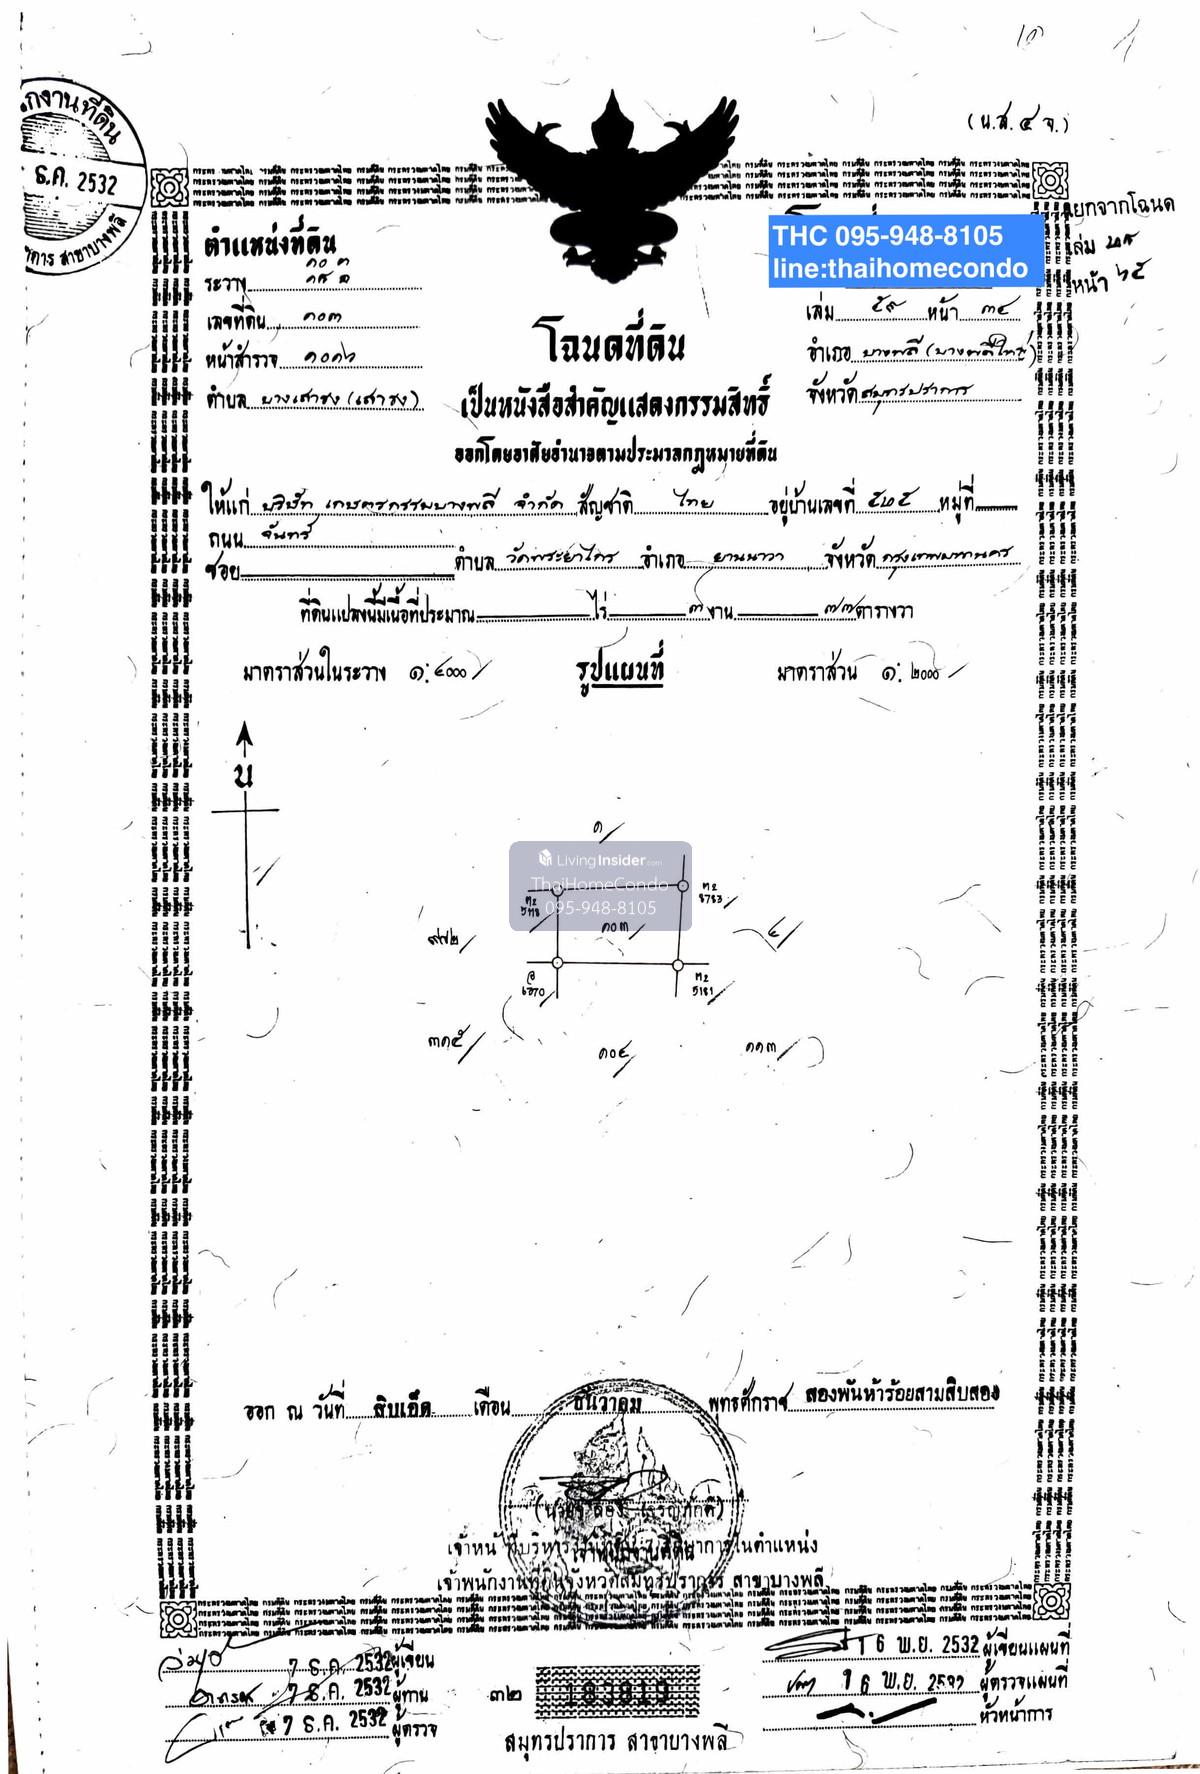 (น.ส. ๔ จ.)
ธ.ค. 2532
สาขาบางพลี
แยกจากโฉนด
เล่ม
หน้า
THC 095-948-8105
line:thaihomecondo
ตำแหน่งที่ดิน
ระวาง
เลขที่ดิน ๑๐๓
หน้าสำรวจ
ตำบล บางเสาธง (เสาธง)
เล่ม ๕๙ หน้า ๓๔
อำเภอ บางพลี (บางพลีใหญ่)
จังหวัด สมุทรปราการ
โฉนดที่ดิน
เป็นหนังสือสำคัญแสดงกรรมสิทธิ์
ออกโดยอาศัยอำนาจตามประมวลกฎหมายที่ดิน
ให้แก่ บริษัท เกษตรกรรมบางพลี จำกัด สัญชาติ ไทย อยู่บ้านเลขที่ หมู่ที่
ถนน จันทร์
ซอย ตำบล วัดพระยาไกร อำเภอ ยานนาวา จังหวัด กรุงเทพมหานคร
ที่ดินแปลงนี้มีเนื้อที่ประมาณ ไร่ ๓ งาน ๗๗ ตารางวา
มาตราส่วนในระวาง ๑:๔๐๐๐ รูปแผนที่ มาตราส่วน ๑:๒๐๐๐
น
๑
LivingInsider.com
ThaiHomeCondo
095-948-8105
ต2
8783
๑๐๓
๙๗๒
๔
6270
ต2
5181
๓๑๕
๑๐๔
๑๑๓
ออก ณ วันที่ สิบเอ็ด เดือน ธันวาคม พุทธศักราช สองพันห้าร้อยสามสิบสอง
เจ้าพนักงานที่ดินจังหวัดสมุทรปราการ สาขาบางพลี
7 ธ.ค. 2532 ผู้เขียน
7 ธ.ค. 2532 ผู้ทาน
7 ธ.ค. 2532 ผู้ตรวจ
16 พ.ย. 2532 ผู้เขียนแผนที่
16 พ.ย. 2532 ผู้ตรวจแผนที่
หัวหน้าการ
๓๒ 183819
สมุทรปราการ สาขาบางพลี